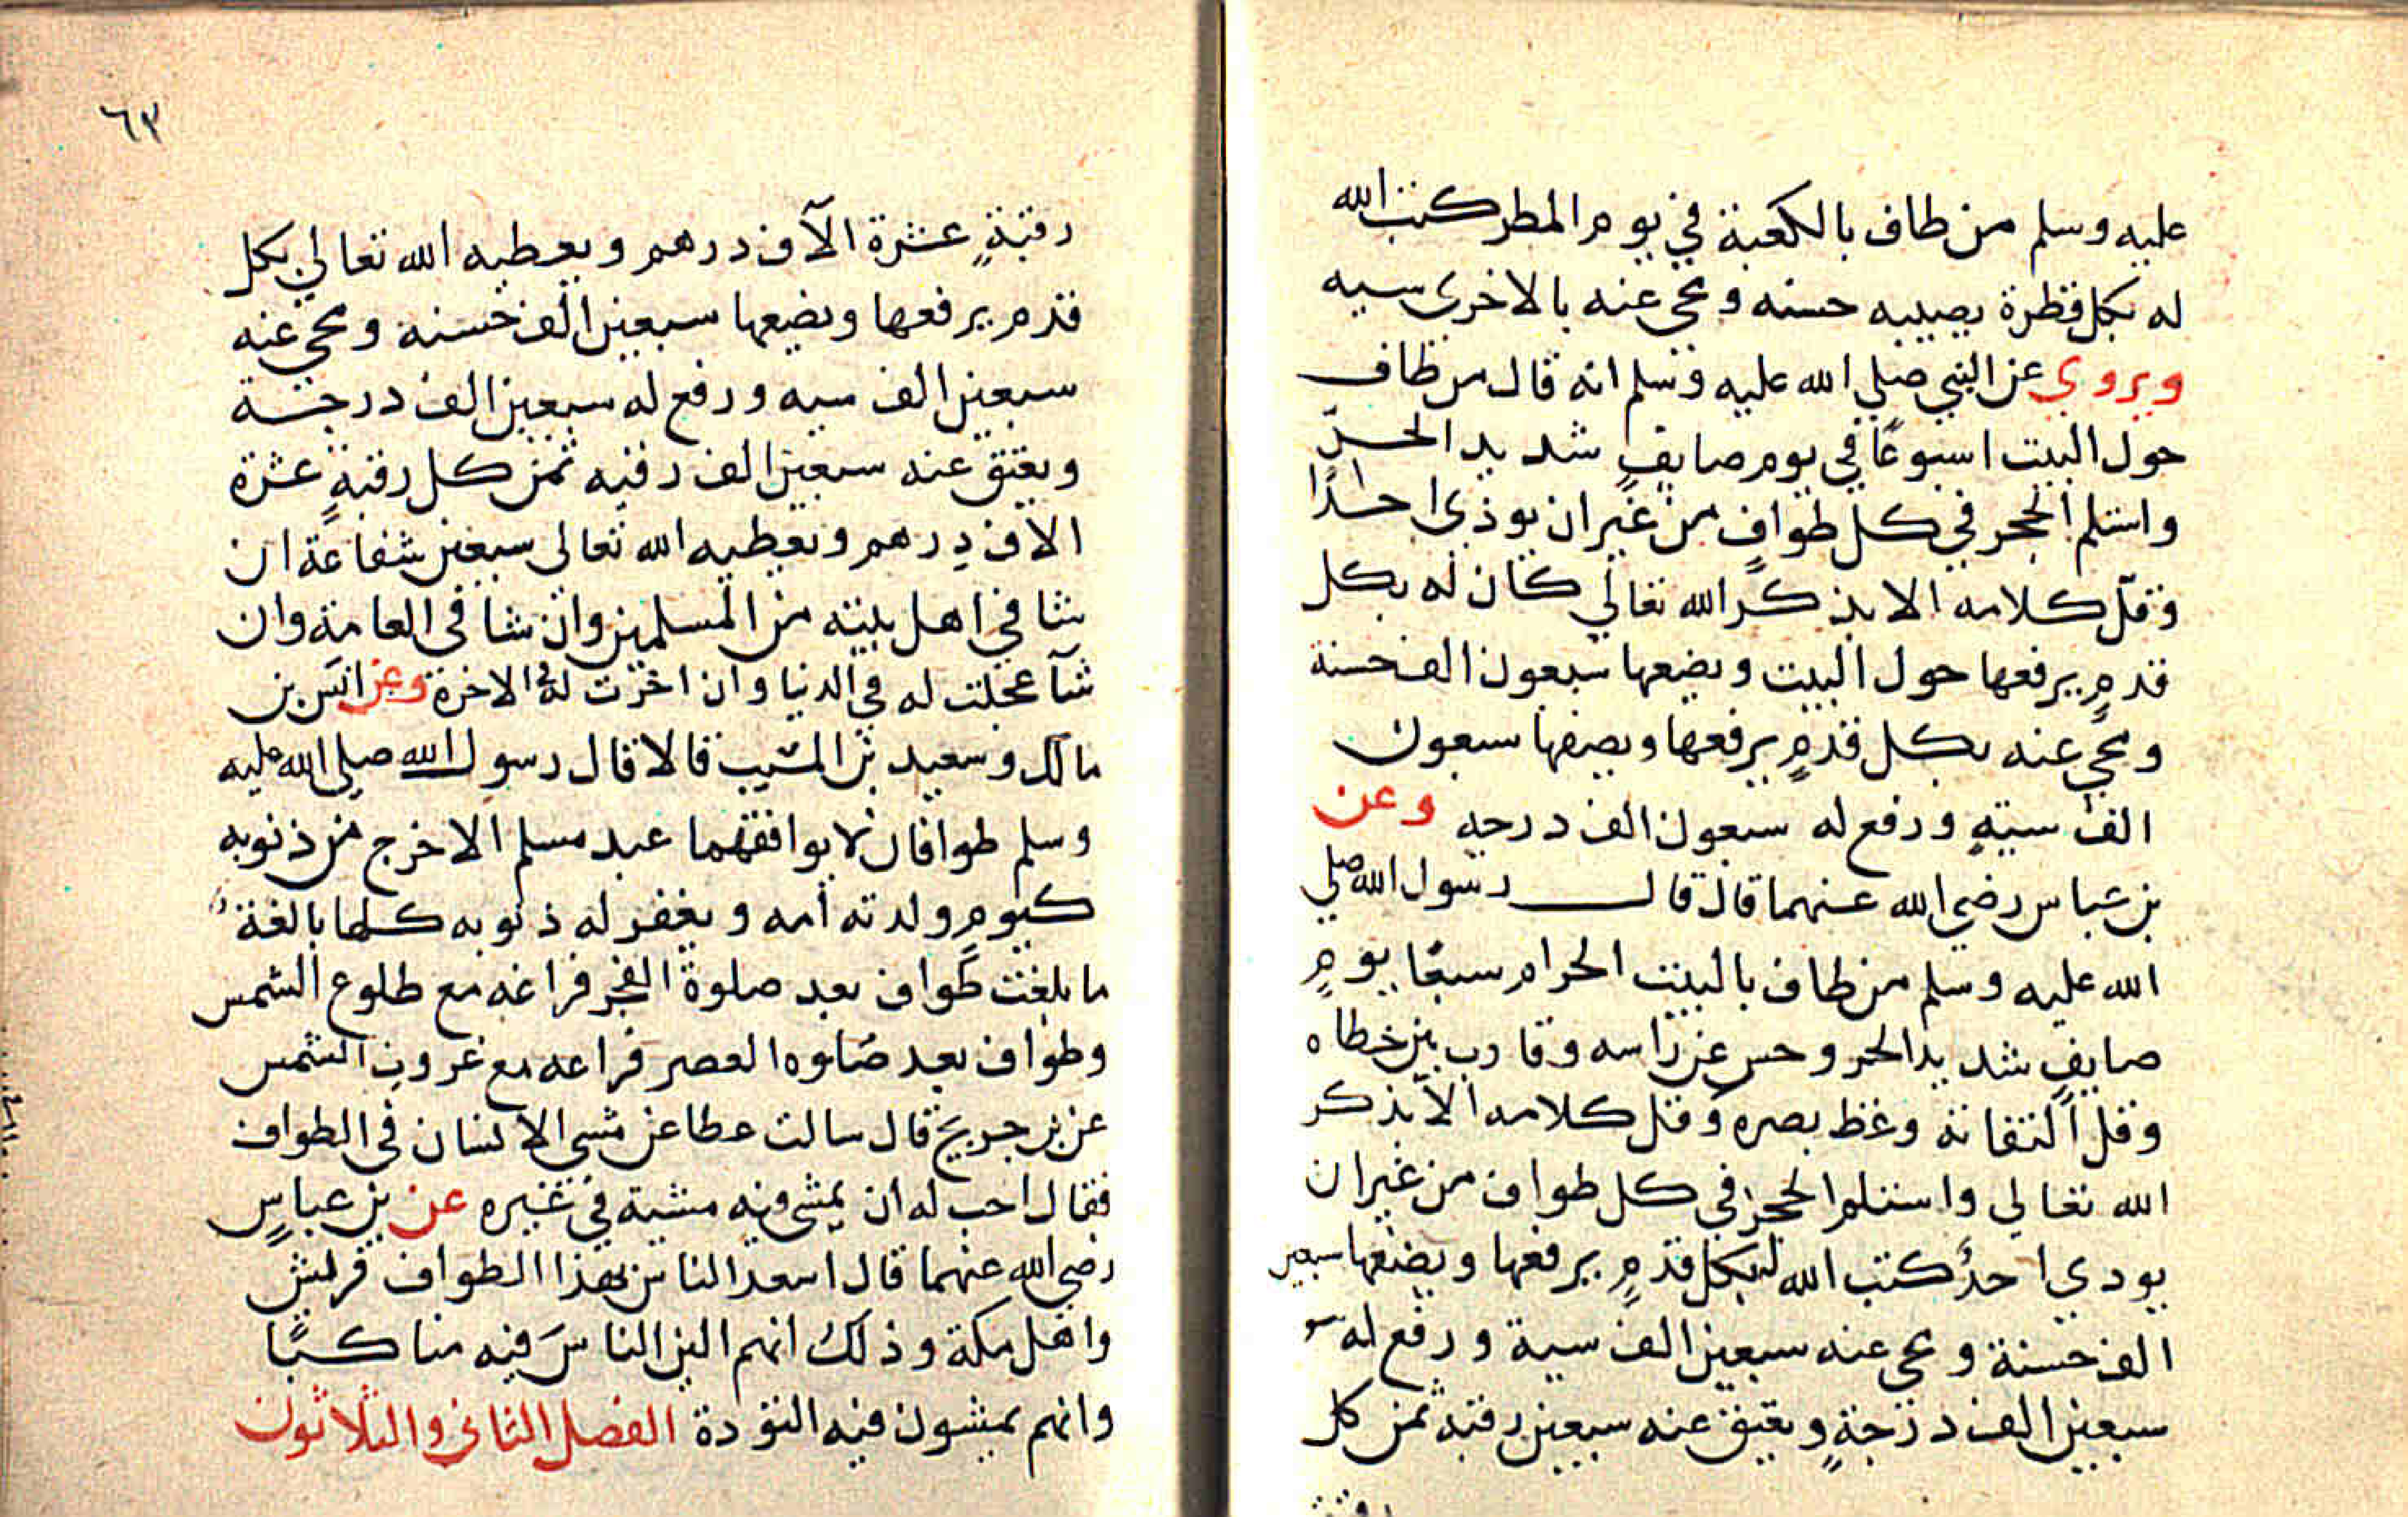 عليه وسلم من طاف بالكعبة في يوم المطر كتب الله
له بكل قطرة يصيبه حسنه ومحي عنه بالاخرى سيه
ويروي عن النبي صلي الله عليه وسلم انه قال من طاف
حول البيت اسبوعًا في يوم صايفٍ شديد الحرّ
واستلم الحجر في كل طوافٍ من غير ان يوذي احدًا
وقلّ كلامه الا بذكر الله تعالي كان له بكل
قدمٍ يرفعها حول البيت ويضعها سبعون الف حسنة
ومحي عنه بكل قدمٍ يرفعها ويضعها سبعون
الف سيةٍ ورفع له سبعون الف درجه وعن
بن عباس رضي الله عنهما قال قال رسول الله صلي
الله عليه وسلم من طاف بالبيت الحرام سبعًا يومٍ
صايفٍ شديد الحر وحسر عن راسه وقارب بين خطاه
وقل التفاته وغظ بصره وقل كلامه الا بذكر
الله تعالي واستلم الحجر في كل طواف من غير ان
يودي احدٌ كتب الله له بكل قدمٍ يرفعها ويضعها سبعين
الف حسنة ومحي عنه سبعين الف سية ورفع له
سبعين الف درجةٍ ويعتق عنه سبعين رقبه ثمن كل
رقبة
٦٣
رقبةٍ عشرة الآف درهم ويعطيه الله تعالي بكل
قدم يرفعها ويضعها سبعين الف حسنه ومحي عنه
سبعين الف سيه ورفع له سبعين الف درجة
ويعتق عنه سبعين الف رقبه ثمن كل رقبةٍ عشرة
الاف درهم ويعطيه الله تعالى سبعين شفاعة ان
شا في اهل بيته من المسلمين وان شا في العامة وان
شآ عجلت له في الدنيا وان اخرت له في الاخرة وعن انس بن
مالك وسعيد بن المسيب قالا قال رسول الله صلى الله عليه
وسلم طوافان لا يوافقهما عبد مسلم الا خرج من ذنوبه
كيوم ولدته أمه ويغفر له ذنوبه كلها بالغة
ما بلغت طواف بعد صلوة الفجر فراغه مع طلوع الشمس
وطواف بعد صلوه العصر فراغه مع غروب الشمس
عن بن جريج قال سالت عطا عن مشي الانسان في الطواف
فقال احب له ان يمشي فيه مشية في غيره عن بن عباسٍ
رضي الله عنهما قال اسعد الناس بهذا الطواف قريش
واهل مكة وذلك انهم الين الناس فيه مناكبًا
وانهم يمشون فيه التؤدة الفصل الثاني والثلاثون